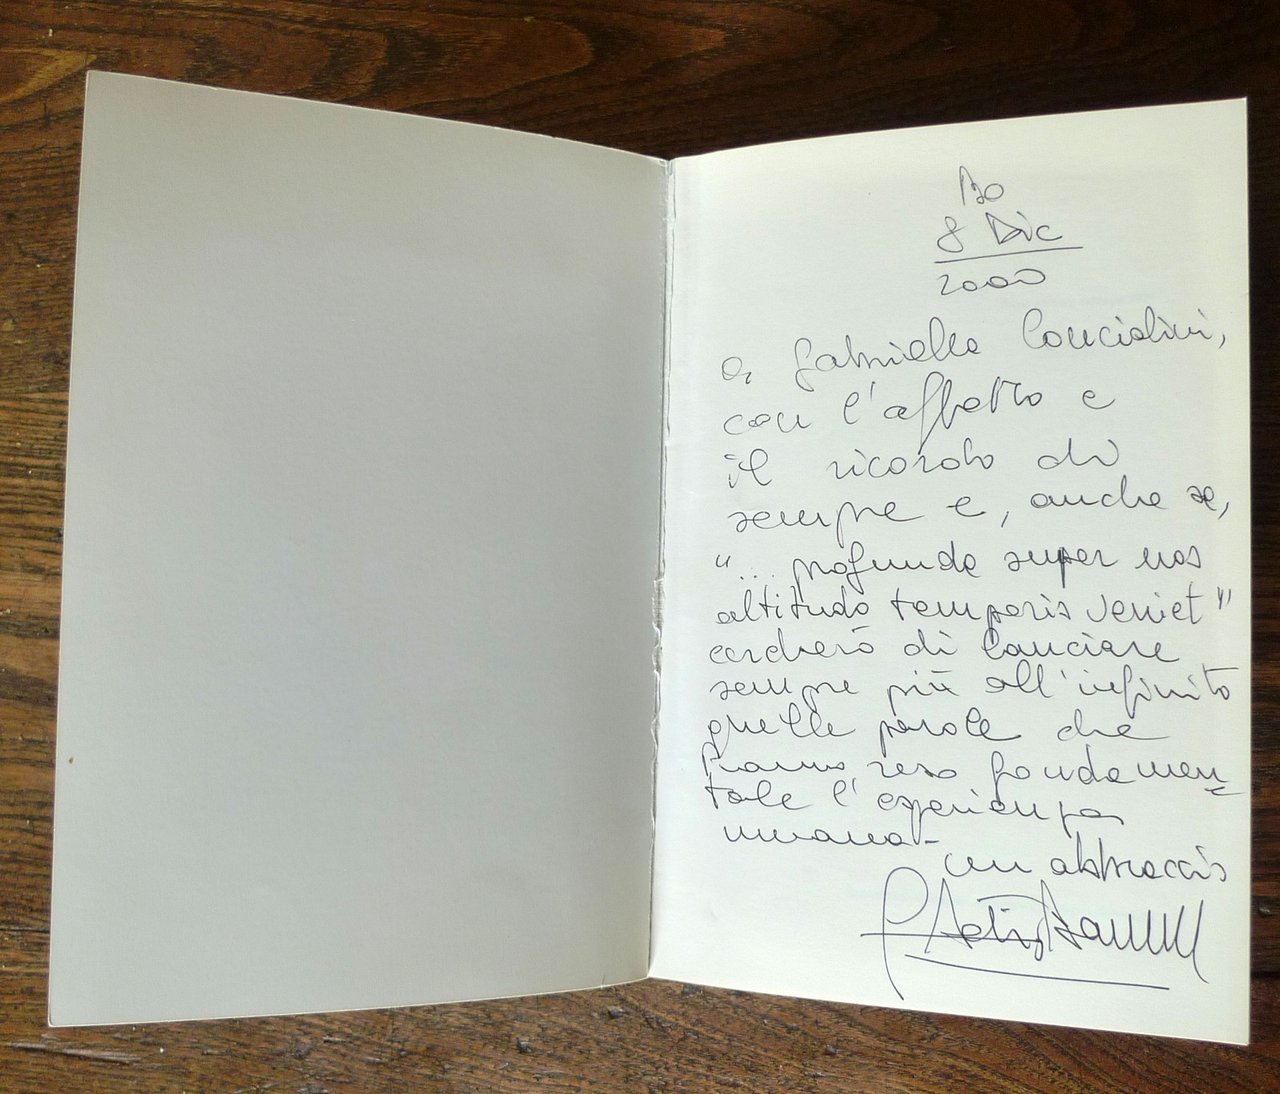 Bo
8 Dic
2000
a Gabriella
con l'affetto e
il ricordo di
sempre e, anche se,
"... profunda super nos
altitudo temporis veniet"
cercherò di lanciare
sempre più all'infinito
quelle parole che
hanno reso fondamen=
tale l'esperienza
umana-
un abbraccio